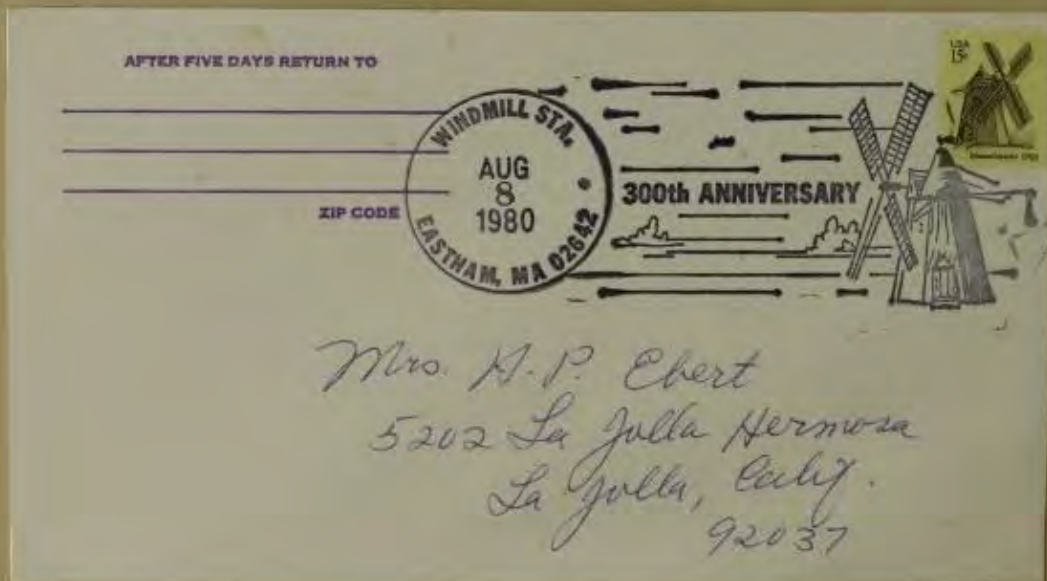 AFTER FIVE DAYS RETURN TO
ZIP CODE
WINDMILL STA.
AUG
8
1980
EASTHAM, MA 02642
300th ANNIVERSARY
USA
15c
Massachusetts 1793
Mrs. H. P. Ebert
5202 La Jolla Hermosa
La Jolla, Calif.
92037